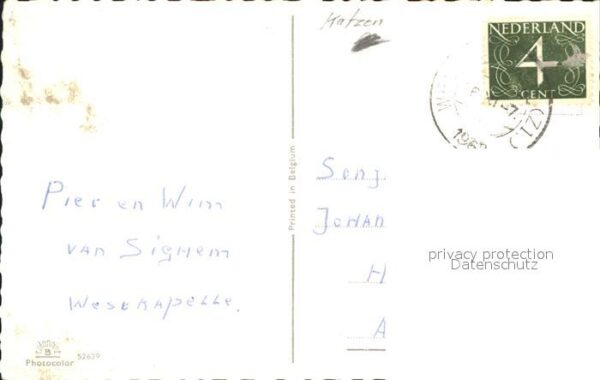 Katzen
NEDERLAND
4
CENT
196
Pier en Wim
van Sighem
Westkapelle.
Printed in Belgium
Sonj
Johan
H
A
privacy protection
Datenschutz
Photocolor 52629